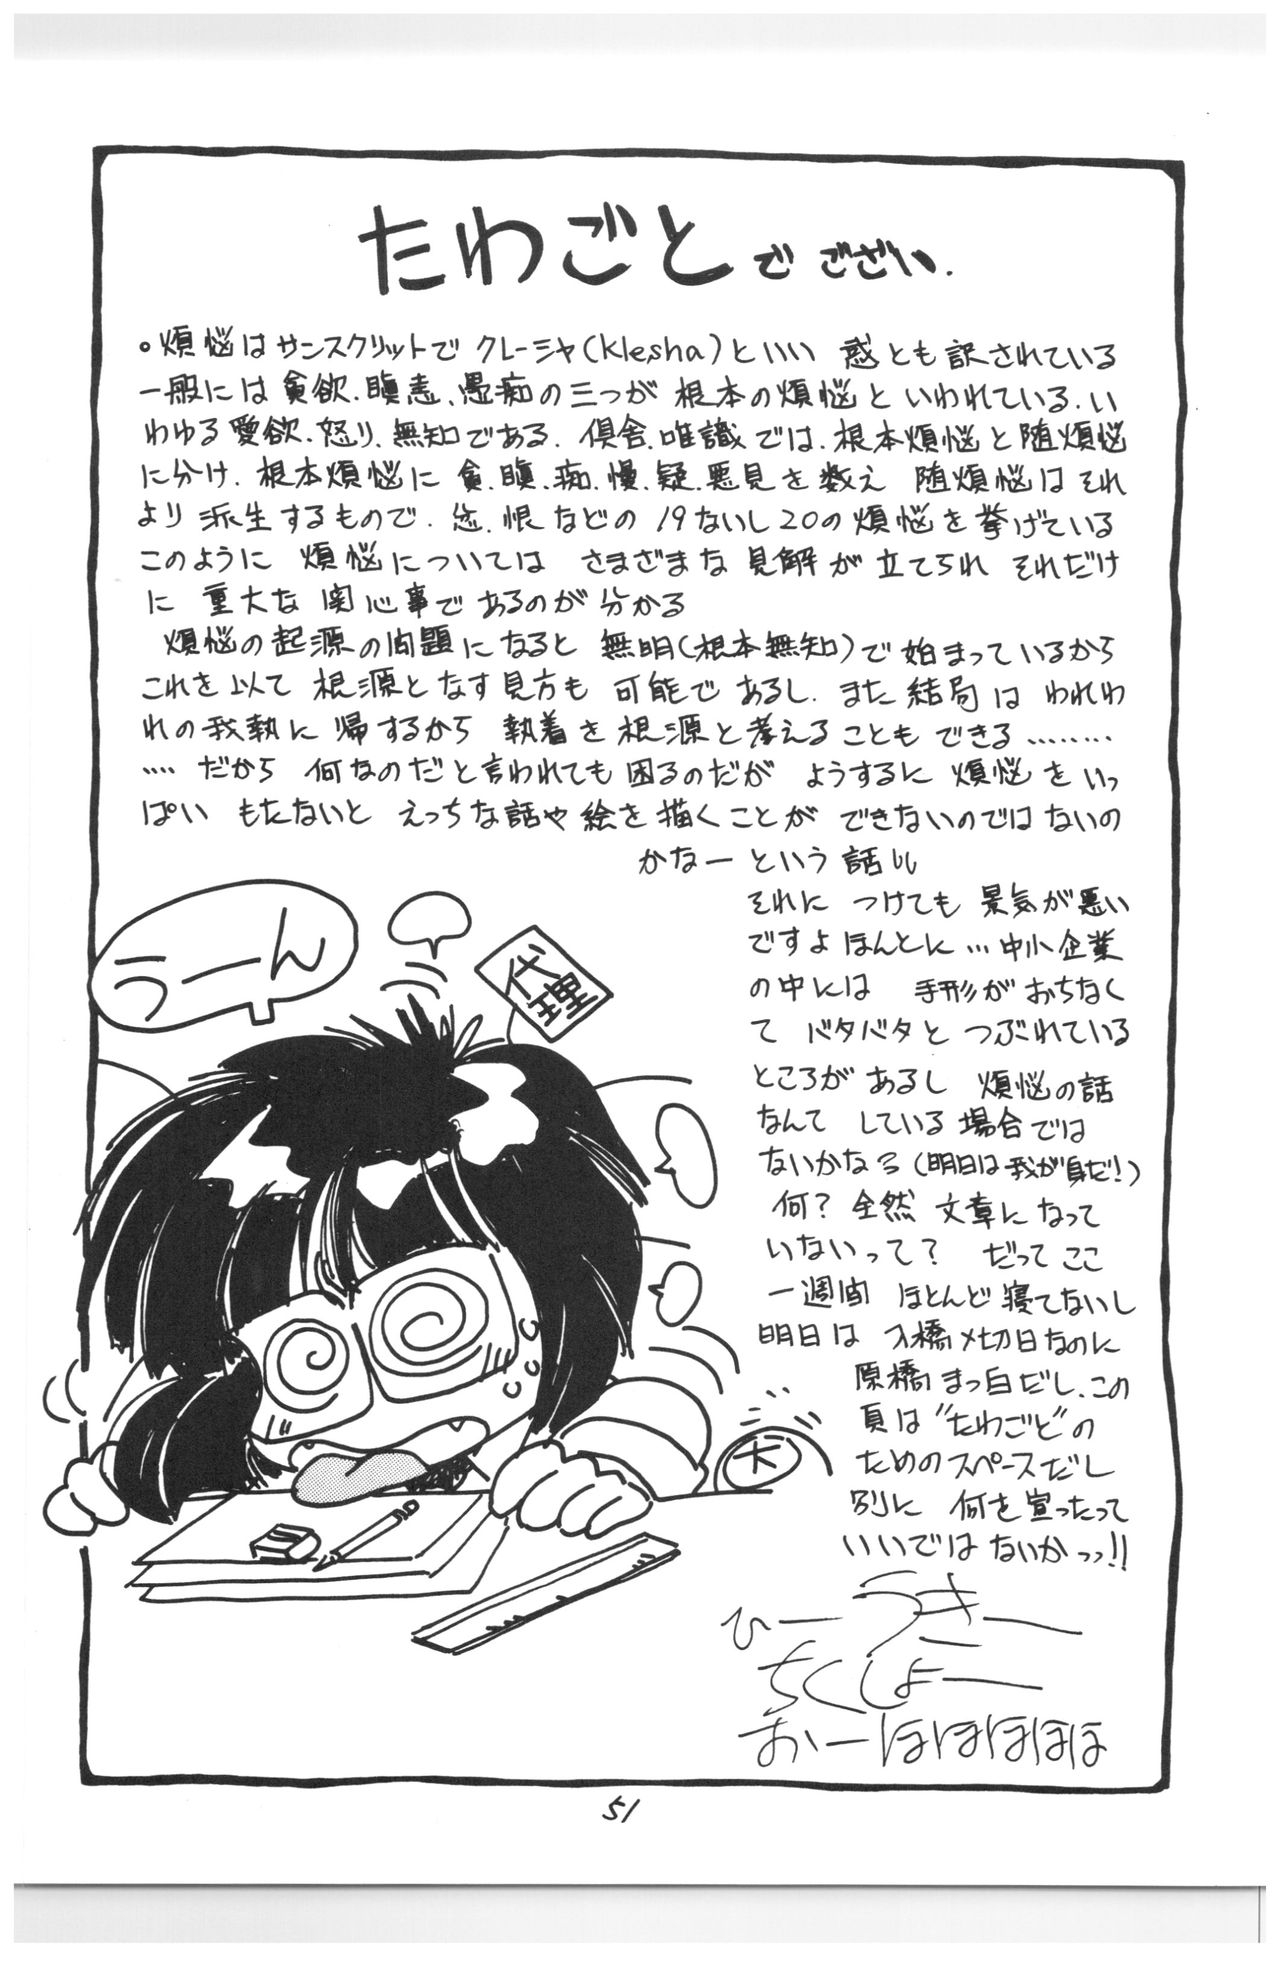 たわごとでござい.
。煩悩はサンスクリットでクレーシャ(klesha)といい 惑とも訳されている
一般には貪欲.瞋恚、愚痴の三つが 根本の煩悩といわれている.い
わゆる愛欲.怒り.無知である. 倶舎.唯識では.根本煩悩と随煩悩
に分け. 根本煩悩に 貪.瞋.痴.慢.疑.悪見を数え 随煩悩はそれ
より派生するもので. 忿.恨などの19ないし20の煩悩を挙げている
このように 煩悩については さまざまな見解が立てられ それだけ
に 重大な関心事であるのが分かる
煩悩の起源の問題になると 無明(根本無知)で始まっているから
これを以て 根源となす見方も 可能であるし.また結局は われわ
れの我執に 帰するから 執着を根源と考えることもできる………
…. だから 何なのだと言われても困るのだが ようするに 煩悩をいっ
ぱい もたないと えっちな話や絵を描くことが できないのではないの
かなーという話
それに つけても 景気が悪い
ですよほんとに…中小企業
の中には 手形がおちなく
て バタバタと つぶれている
ところがあるし 煩悩の話
なんて している場合では
ないかなろ(明日は我が身だ!)
何? 全然 文章になって
いないって? だってここ
一週間 ほとんど寝てないし
明日は 入橋〆切日なのに
原橋まっ白だし、この
頁は"たわごと"の
ためのスペースだし
別に 何を宣ったって
いいではないかっっ!!
ひーうきー
ちくしょー
おーほほほほほ
うーん
代理
大
51